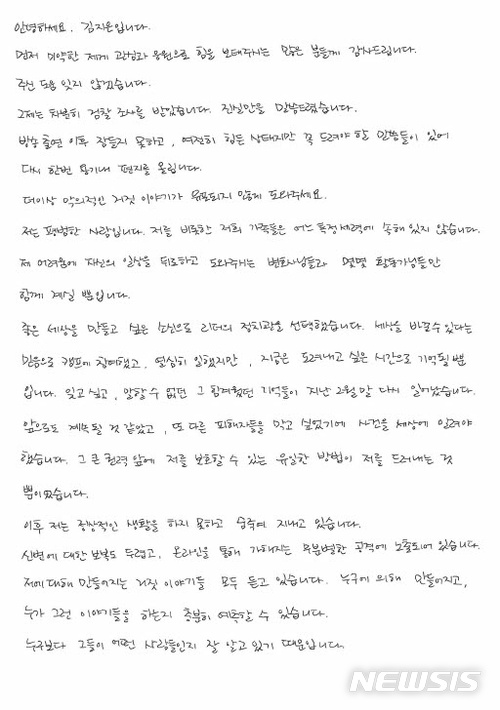 안녕하세요. 김지은입니다.
먼저 미약한 제게 관심과 응원으로 힘을 보태주시는 많은 분들께 감사드립니다.
주신 도움 잊지 않겠습니다.
그제는 차분히 검찰 조사를 받았습니다. 진실만을 말씀드렸습니다.
방송 출연 이후 잠들지 못하고, 여전히 힘든 상태지만 꼭 드려야 할 말씀들이 있어
다시 한번 용기내 편지를 올립니다.
더이상 악의적인 거짓 이야기가 유포되지 않게 도와주세요.
저는 평범한 사람입니다. 저를 비롯한 저희 가족들은 어느 특정 세력에 속해 있지 않습니다.
제 어려움에 자신의 일상을 뒤로하고 도와주시는 변호사님들과 몇몇 활동가님들만
함께 계실 뿐입니다.
좋은 세상을 만들고 싶은 소신으로 리더의 정치관을 선택했습니다. 세상을 바꿀수 있다는
믿음으로 캠프에 참여했고, 열심히 일했지만, 지금은 도려내고 싶은 시간으로 기억될 뿐
입니다. 잊고 싶고, 말할 수 없던 그 힘겨웠던 기억들이 지난 2월 말 다시 일어났습니다.
앞으로도 계속될 것 같았고, 또 다른 피해자들을 막고 싶었기에 사건을 세상에 알려야
했습니다. 그 큰 권력 앞에 저를 보호할 수 있는 유일한 방법이 저를 드러내는 것
뿐이었습니다.
이후 저는 정상적인 생활을 하지 못하고 숨죽여 지내고 있습니다.
신변에 대한 보복도 두렵고, 온라인을 통해 가해지는 무분별한 공격에 노출되어 있습니다.
저에 대해 만들어지는 거짓 이야기들 모두 듣고 있습니다. 누구에 의해 만들어지고,
누가 그런 이야기들을 하는지 충분히 예측할 수 있습니다.
누구보다 그들이 어떤 사람들인지 잘 알고 있기 때문입니다.
NEWSIS